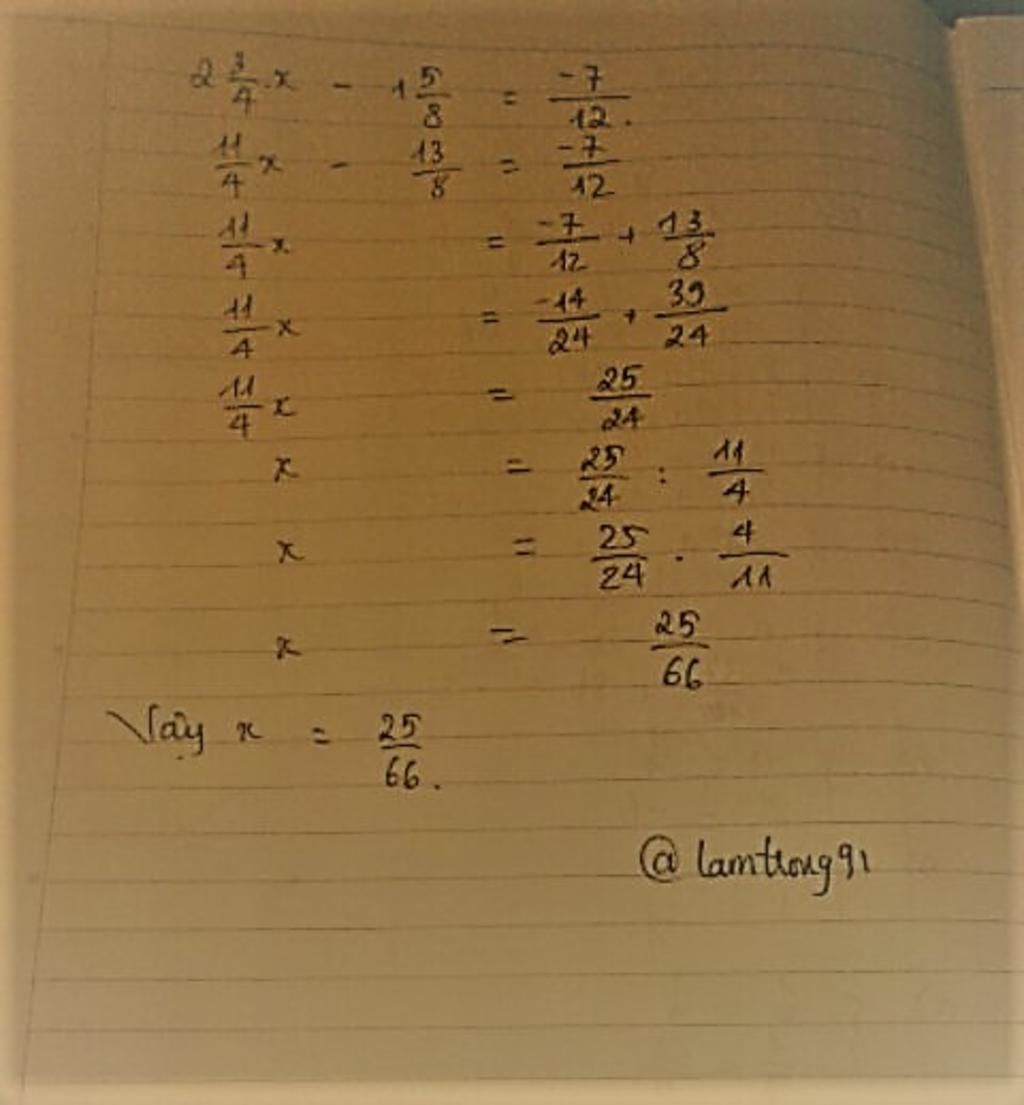 2 3/4 . x - 1 5/8 = -7/12.
11/4 x - 13/8 = -7/12
11/4 x = -7/12 + 13/8
11/4 x = -14/24 + 39/24
11/4 x = 25/24
x = 25/24 : 11/4
x = 25/24 . 4/11
x = 25/66
Vậy x = 25/66.
@lamtrong91